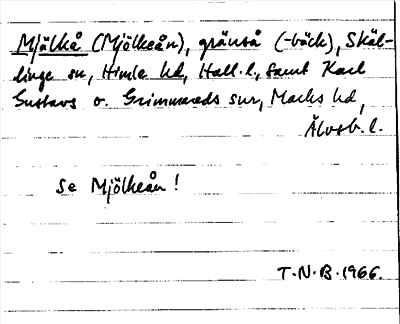 Mjälkå (Mjölkeån), gränså (-bäck), Skäl-
linge sn, Himle hd, Hall. l., samt Karl
Gustavs o. Grimmareds snr, Marks hd,
Älvsb. l.
Se Mjölkeån!
T.N.B. 1966.